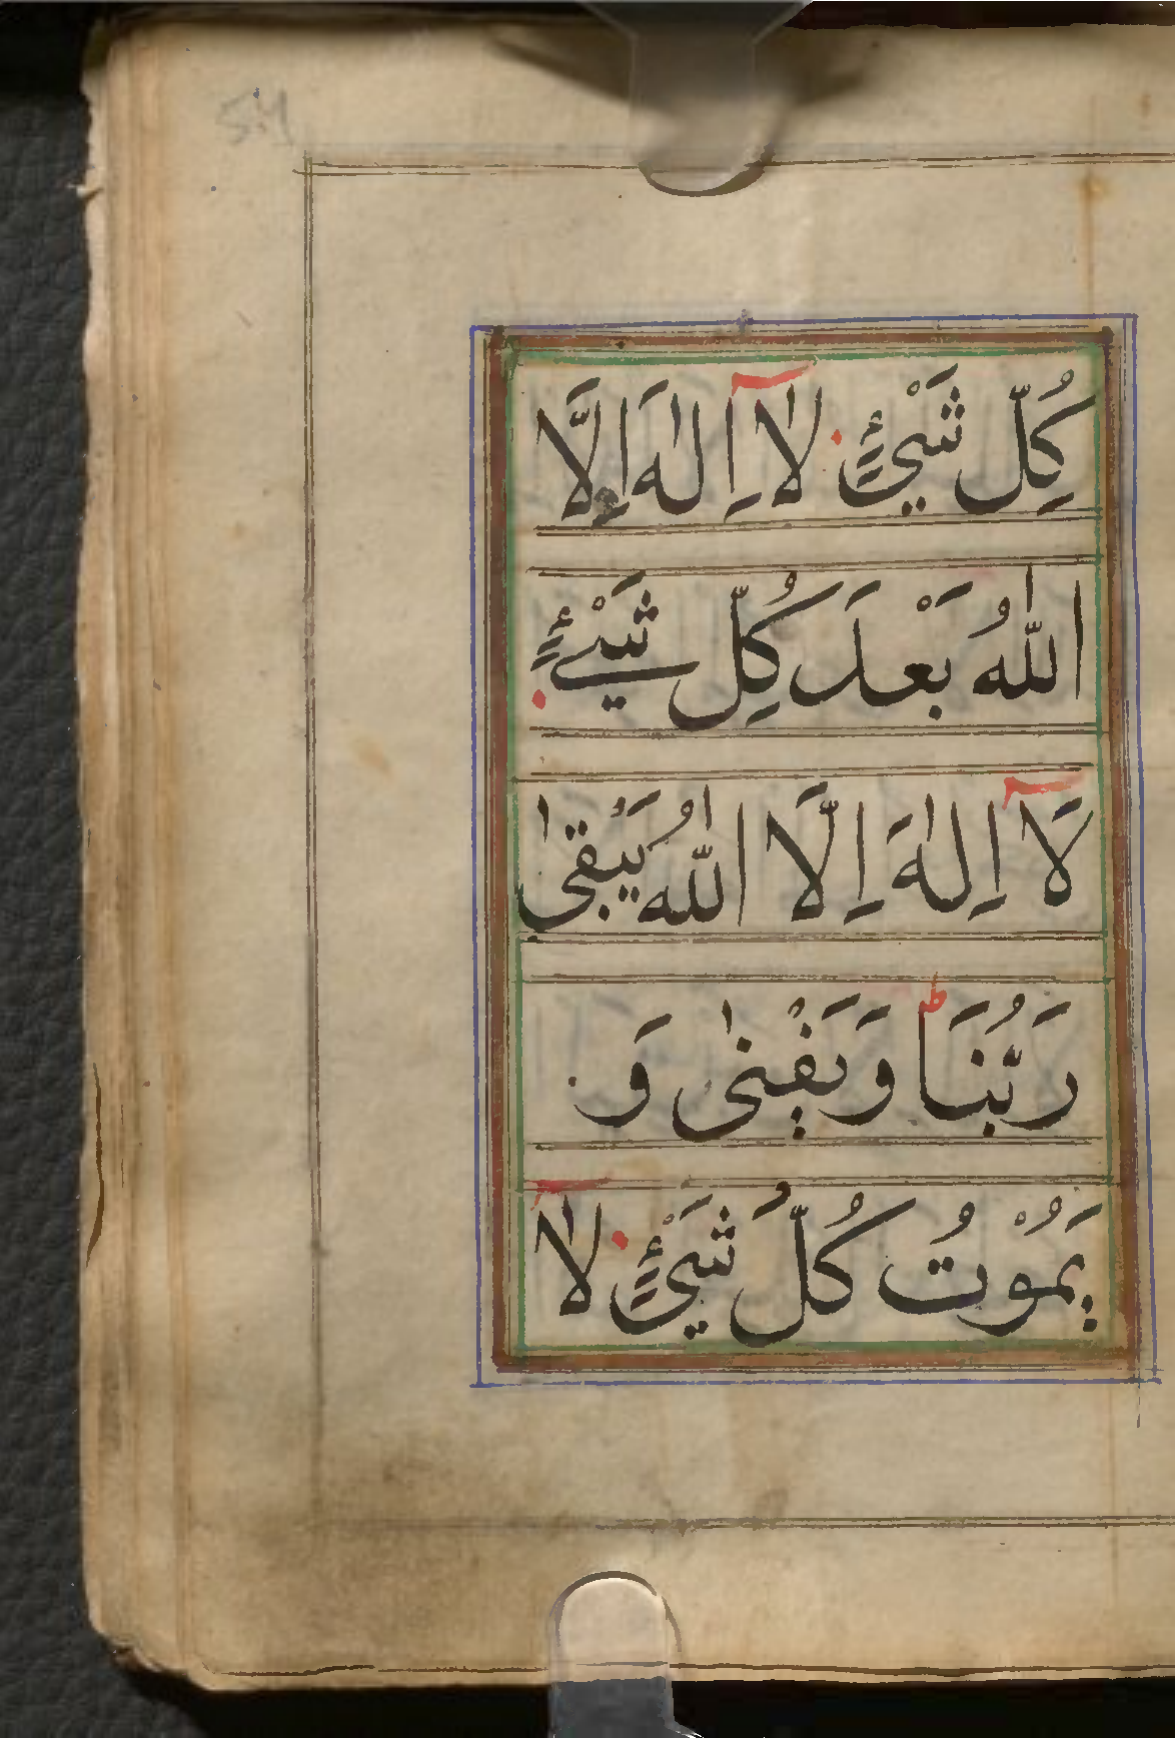 كُلِّ شَيْئٍ لَآ اِلٰهَ اِلَّا
اللّٰهُ بَعْدَ كُلِّ شَيْئٍ
لَآ اِلٰهَ اِلَّا اللّٰهُ يَبْقٰى
رَبُّنَا ط وَيَفْنٰى وَ
يَمُوْتُ كُلُّ شَيْئٍ لَآ